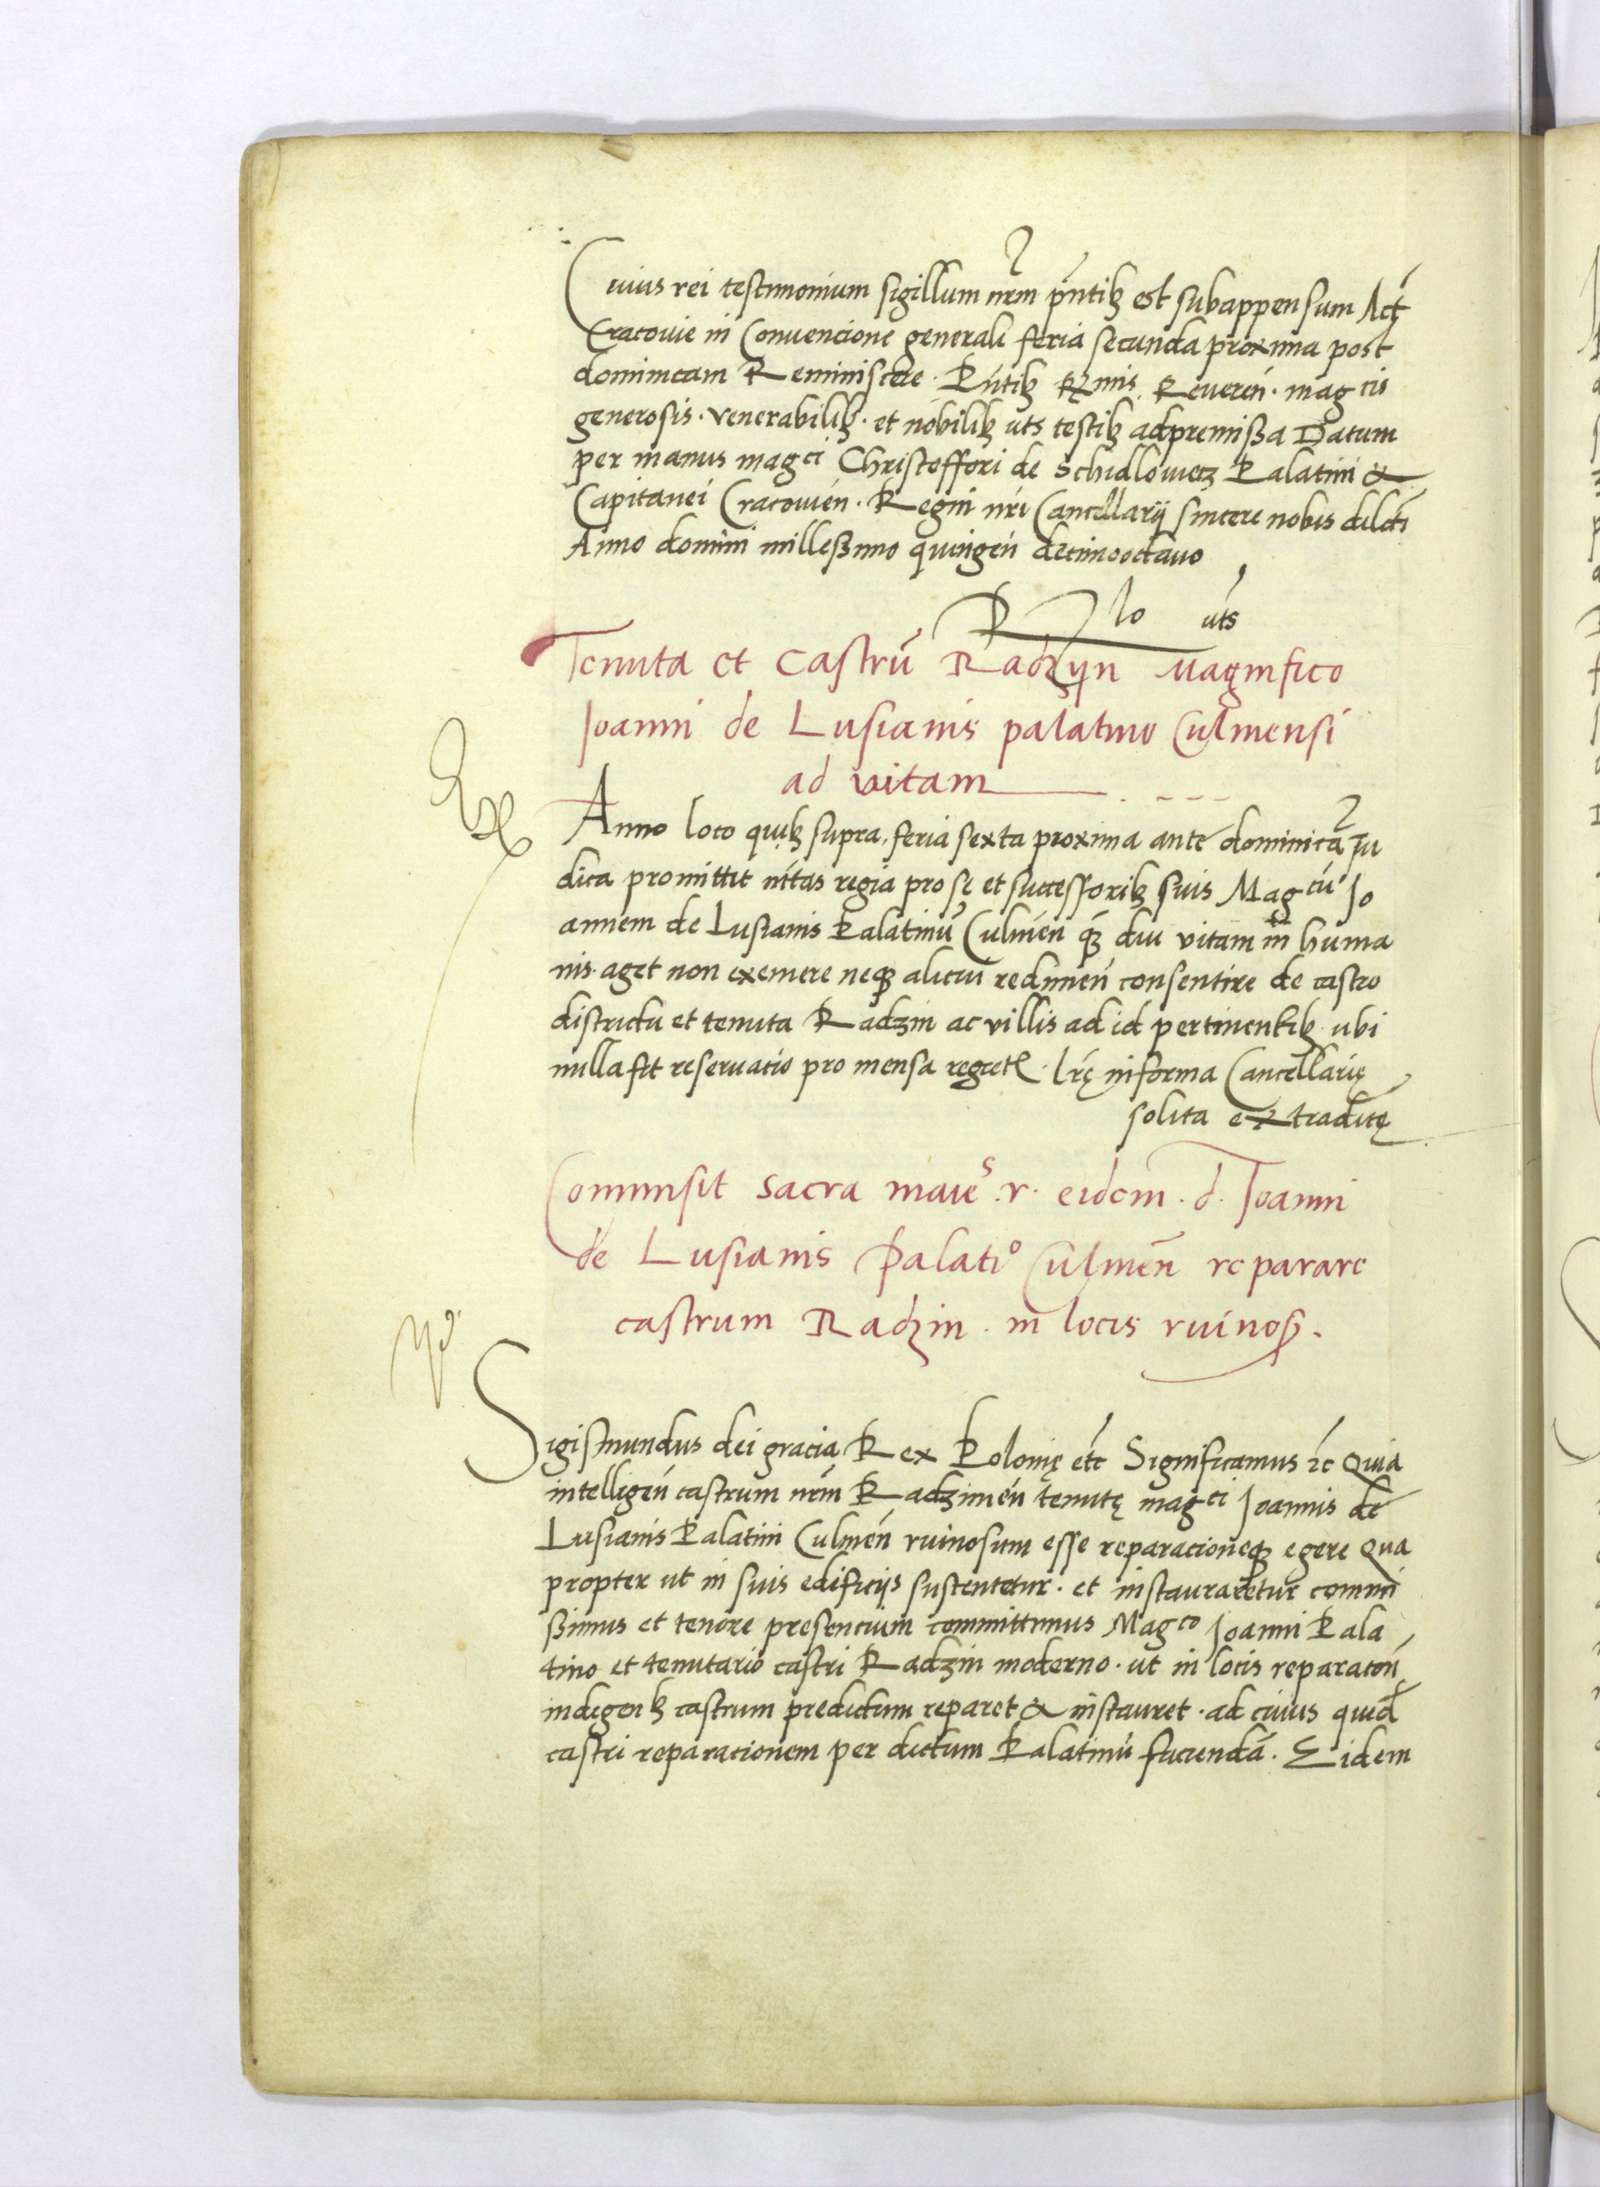 Cuius rei testimonium sigillum nr̄m pn̄tib₃ est subappensum Act̄
Cracouie in Conuencione generali feria secunda proxima post
dominicam Reminiscere. Pn̄tib₃ Rmis. Reueren̄. magcis
generosis. venerabilib₃. et nobilib₃ uts testib₃ ad premissa Datum
per manus magci Christoffori de Schidlowetz Palatini &
Capitanei Cracouien̄. Regni nr̄i Cancellarij sincere nobis dilcti
Anno domini millesimo quingen̄ decimooctauo
Rlo uts
Tenuta et Castrū Radzijn Magnifico
Joanni de Lusianis palatino Culmensi
ad vitam
Anno loco quib₃ supra, feria sexta proxima ante dominicā Iu
dica promittit mtas regia pro se et successorib₃ suis Magcū Jo
annem de Lusianis Palatinū Culmen̄ q₃ diu vitam in huma
nis aget non eximere neq₃ alicui redimen̄ consentire de castro
districtu et tenuta Radzin ac villis ad id pertinentib₃ ubi
nulla fit reseruatio pro mensa rega etc. Lrę in forma Cancellarię
solita extraditę
Commisit sacra maies. r. eidem. d. Joanni
de Lusianis Palatio Culmen̄ reparare
castrum Radzin. in locis ruinos.
Sigismundus dei gracia Rex Polonię etc̄ Significamus ꝛc Quia
intelligen̄ castrum nr̄m Radzimen̄ tenutę magci Joannis de
Lusianis Palatini Culmen̄ ruinosum esse reparacioneq₃ egere Qua
propter ut in suis edificijs sustentetur. et instauraretur commi
simus et tenore presencium committimus Magco Joanni Pala
tino et tenutario castri Radzin moderno. ut in locis reparacon̄
indigen̄ castrum predictum reparet & instauret. ad cuius quid
castri reparacionem per dictum Palatinū faciendā. Eidem